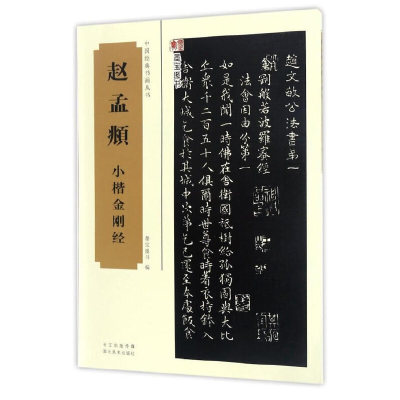 中国经典书画丛书
赵孟頫
小楷金刚经
墨宝斋书 编
长江出版传媒
湖北美术出版社
趙文敏公法書第一
金剛般若波羅蜜經
法會因由份第一
如是我聞一時佛在舍衛國祇樹給孤獨園與大比
丘眾千二百五十人俱爾時世尊食時著衣持鉢入
舍衛大城乞食於其城中次第乞已還至本處飯食